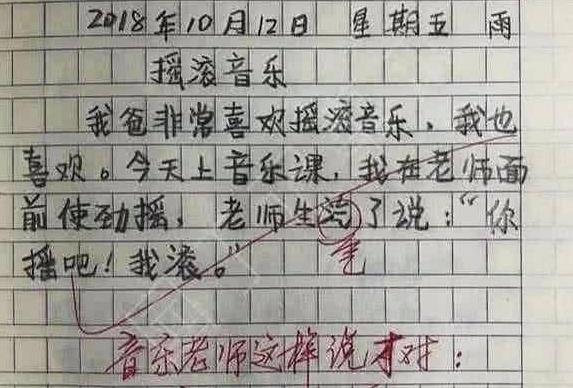 2018年10月12日 星期五 雨
摇滚音乐
我爸非常喜欢摇滚音乐，我也
喜欢。今天上音乐课，我在老师面
前使劲摇，老师生气了说：“你
摇吧！我滚。”
音乐老师这样说才对：